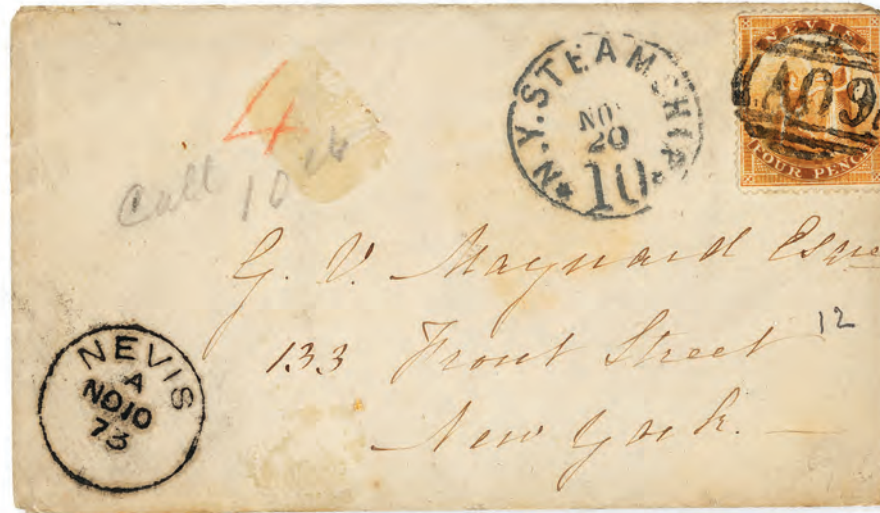 4
Call
10 cts
N.Y. STEAMSHIP
NO
20
10
NEVIS
A09
FOUR PENCE
G. V. Maynard Esqre
133 Front Street
12
New York.
NEVIS
A
NO10
73